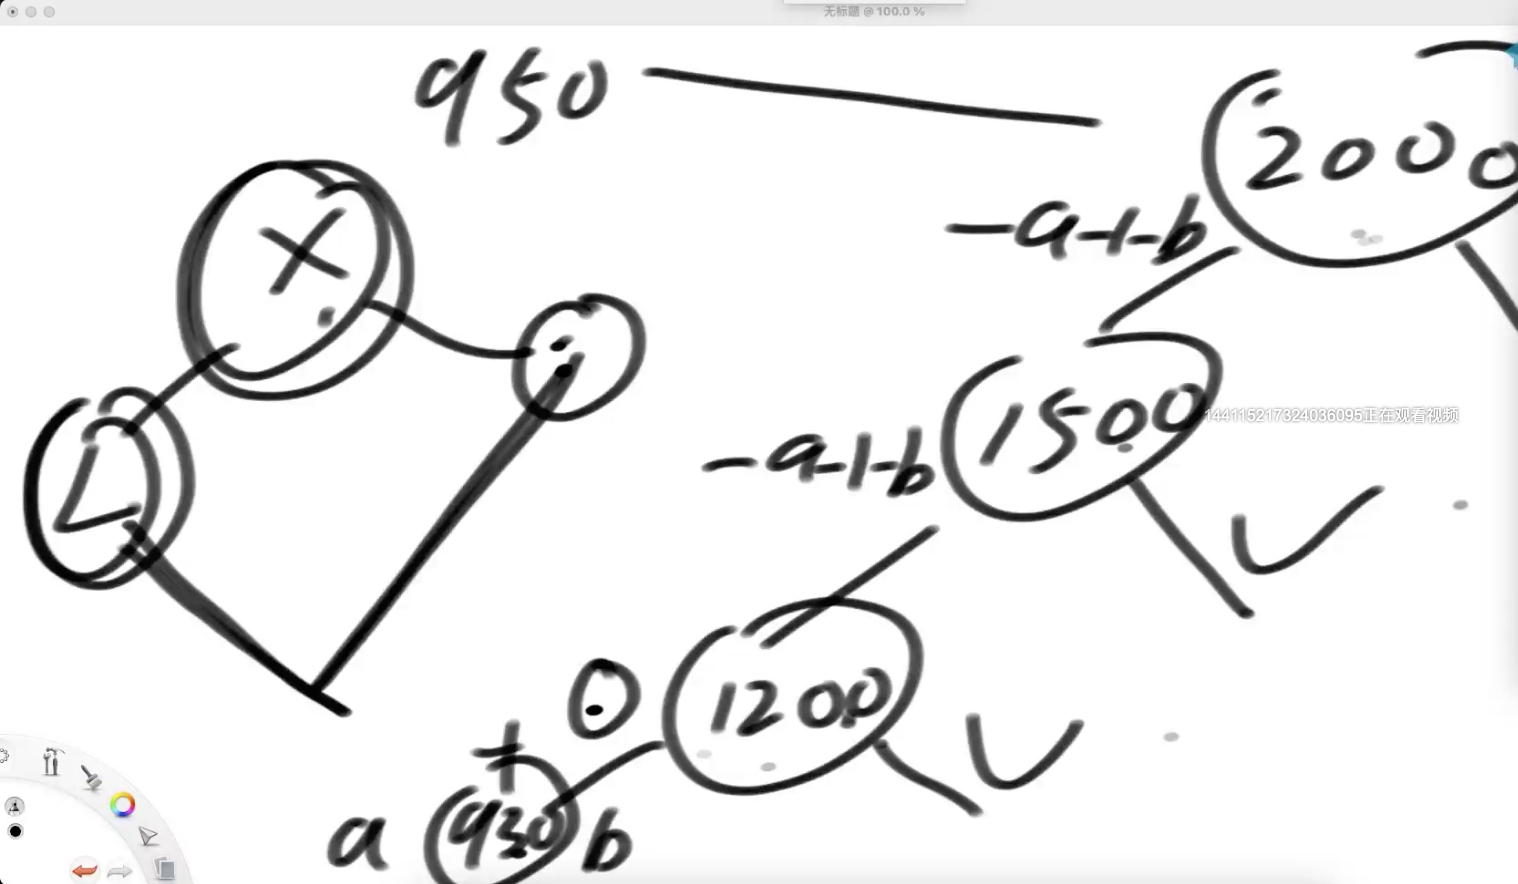 无标题 @ 100.0 %
950
2000
X
-a-1-b
1500
144115217324036095正在观看视频
-a-1-b
L
1200
a 930 b